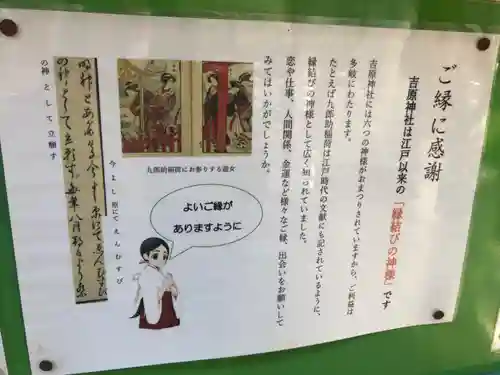 ご縁に感謝
吉原神社は江戸以来の「縁結びの神様」です
吉原神社には六つの神様がおまつりされていますから、ご利益は
多岐にわたります。
たとえば九郎助稲荷は江戸時代の文献にも記されているように、
縁結びの神様として広く知られていました。
恋や仕事、人間関係、金運など様々なご縁、出会いをお願いして
みてはいかがでしょうか。
九郎助稲荷にお参りする遊女
よいご縁が
ありますように
今よし原にてえんむすび
の神として立願す